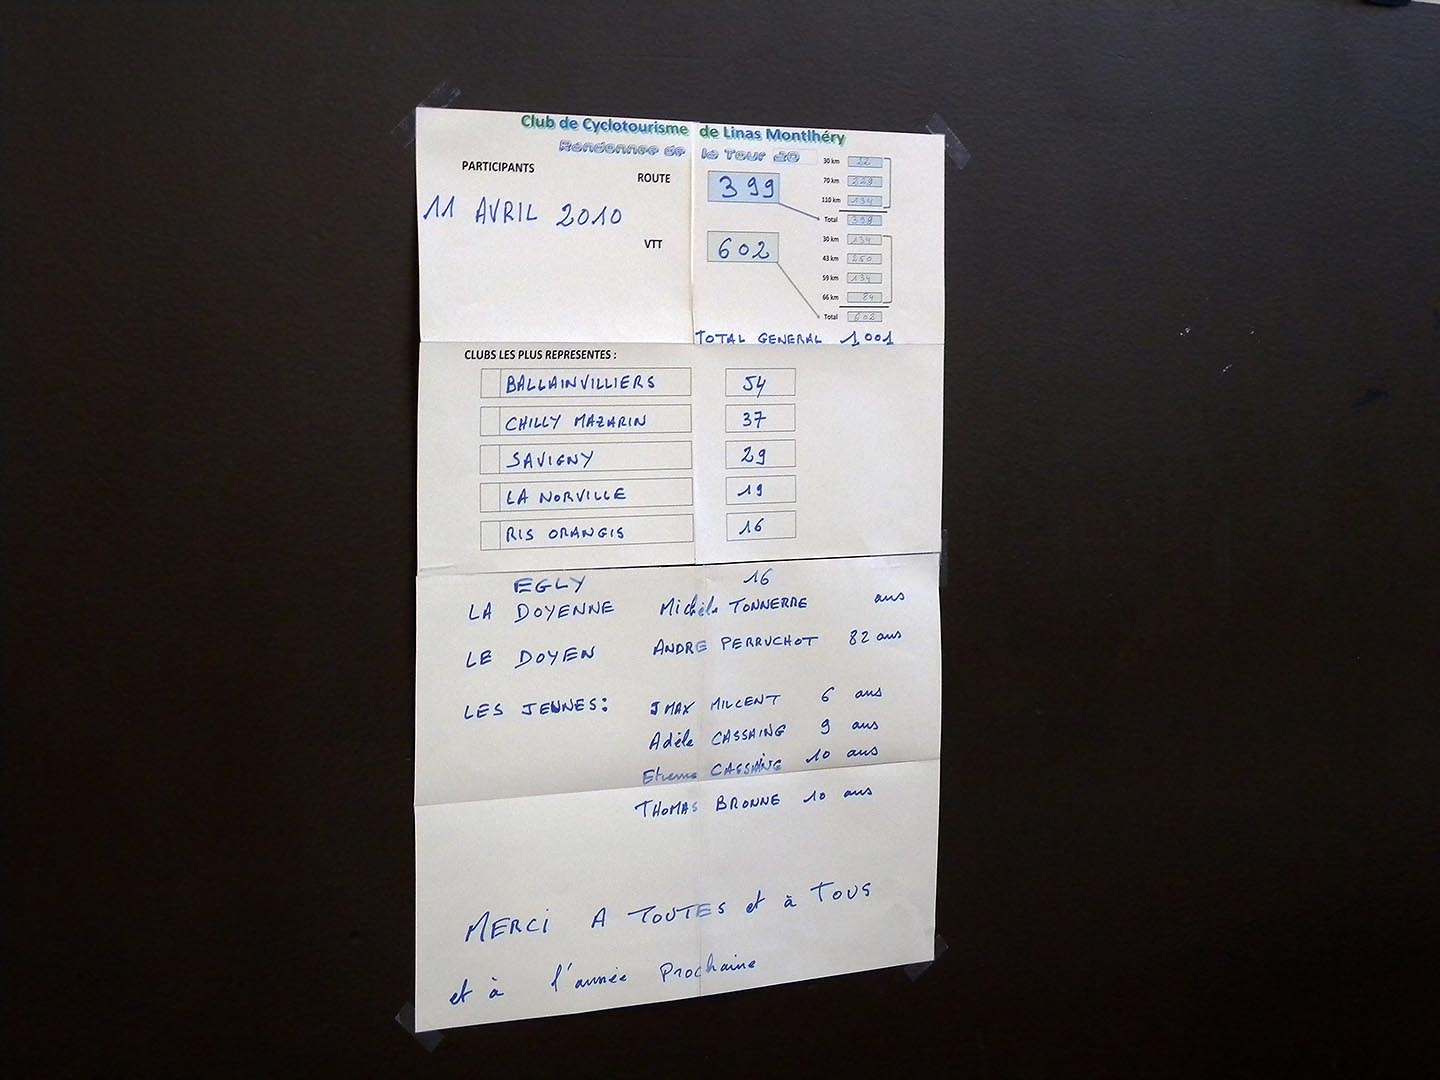 Club de Cyclotourisme de Linas Montlhéry
Randonnee de la Tour 20
PARTICIPANTS
ROUTE
399
30 km 22
70 km
110 km 134
Total
11 AVRIL 2010
VTT
602
30 km 134
43 km 250
59 km 134
66 km 84
Total 602
TOTAL GENERAL 1001
CLUBS LES PLUS REPRESENTES :
BALLAINVILLIERS 54
CHILLY MAZARIN 37
SAVIGNY 29
LA NORVILLE 19
RIS ORANGIS 16
EGLY 16
LA DOYENNE Michèle TONNERRE ans
LE DOYEN ANDRE PERRUCHOT 82 ans
LES JEUNES: JMAX MILCENT 6 ans
Adèle CASSAING 9 ans
Etienne CASSAING 10 ans
THOMAS BRONNE 10 ans
MERCI A TOUTES et à TOUS
et à l'année Prochaine